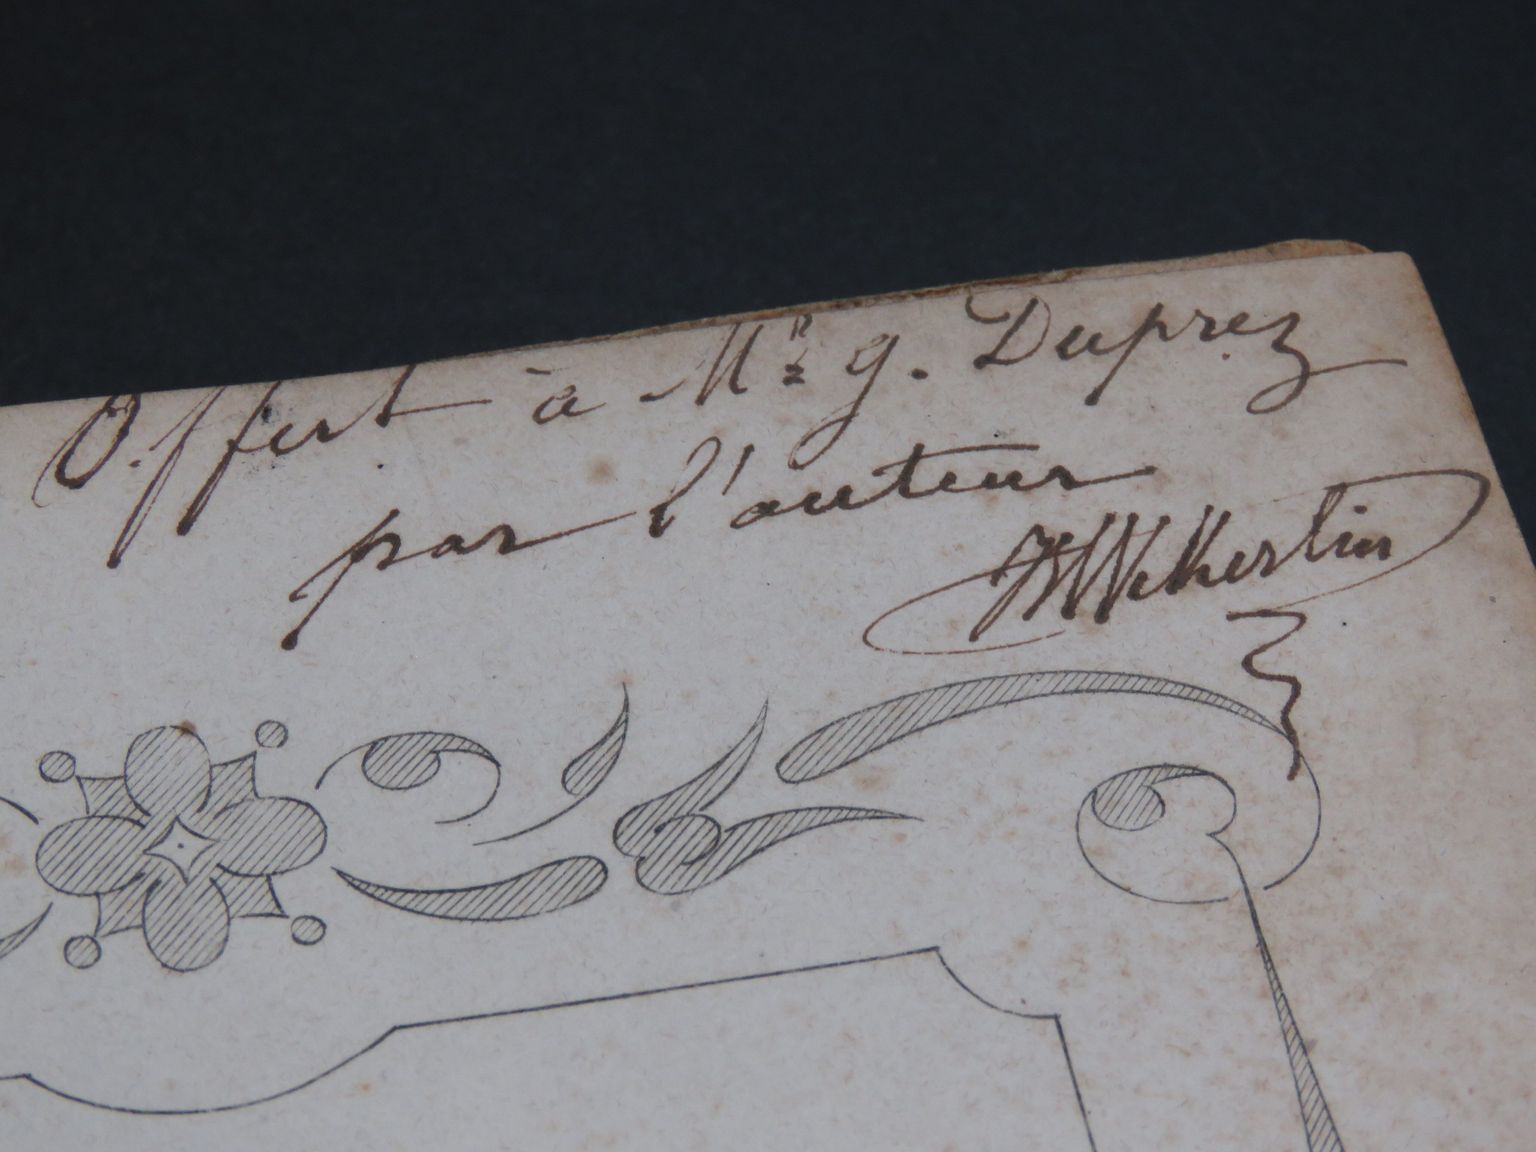 Offert à Mr g. Duprez
par l'auteur
JBWekerlin